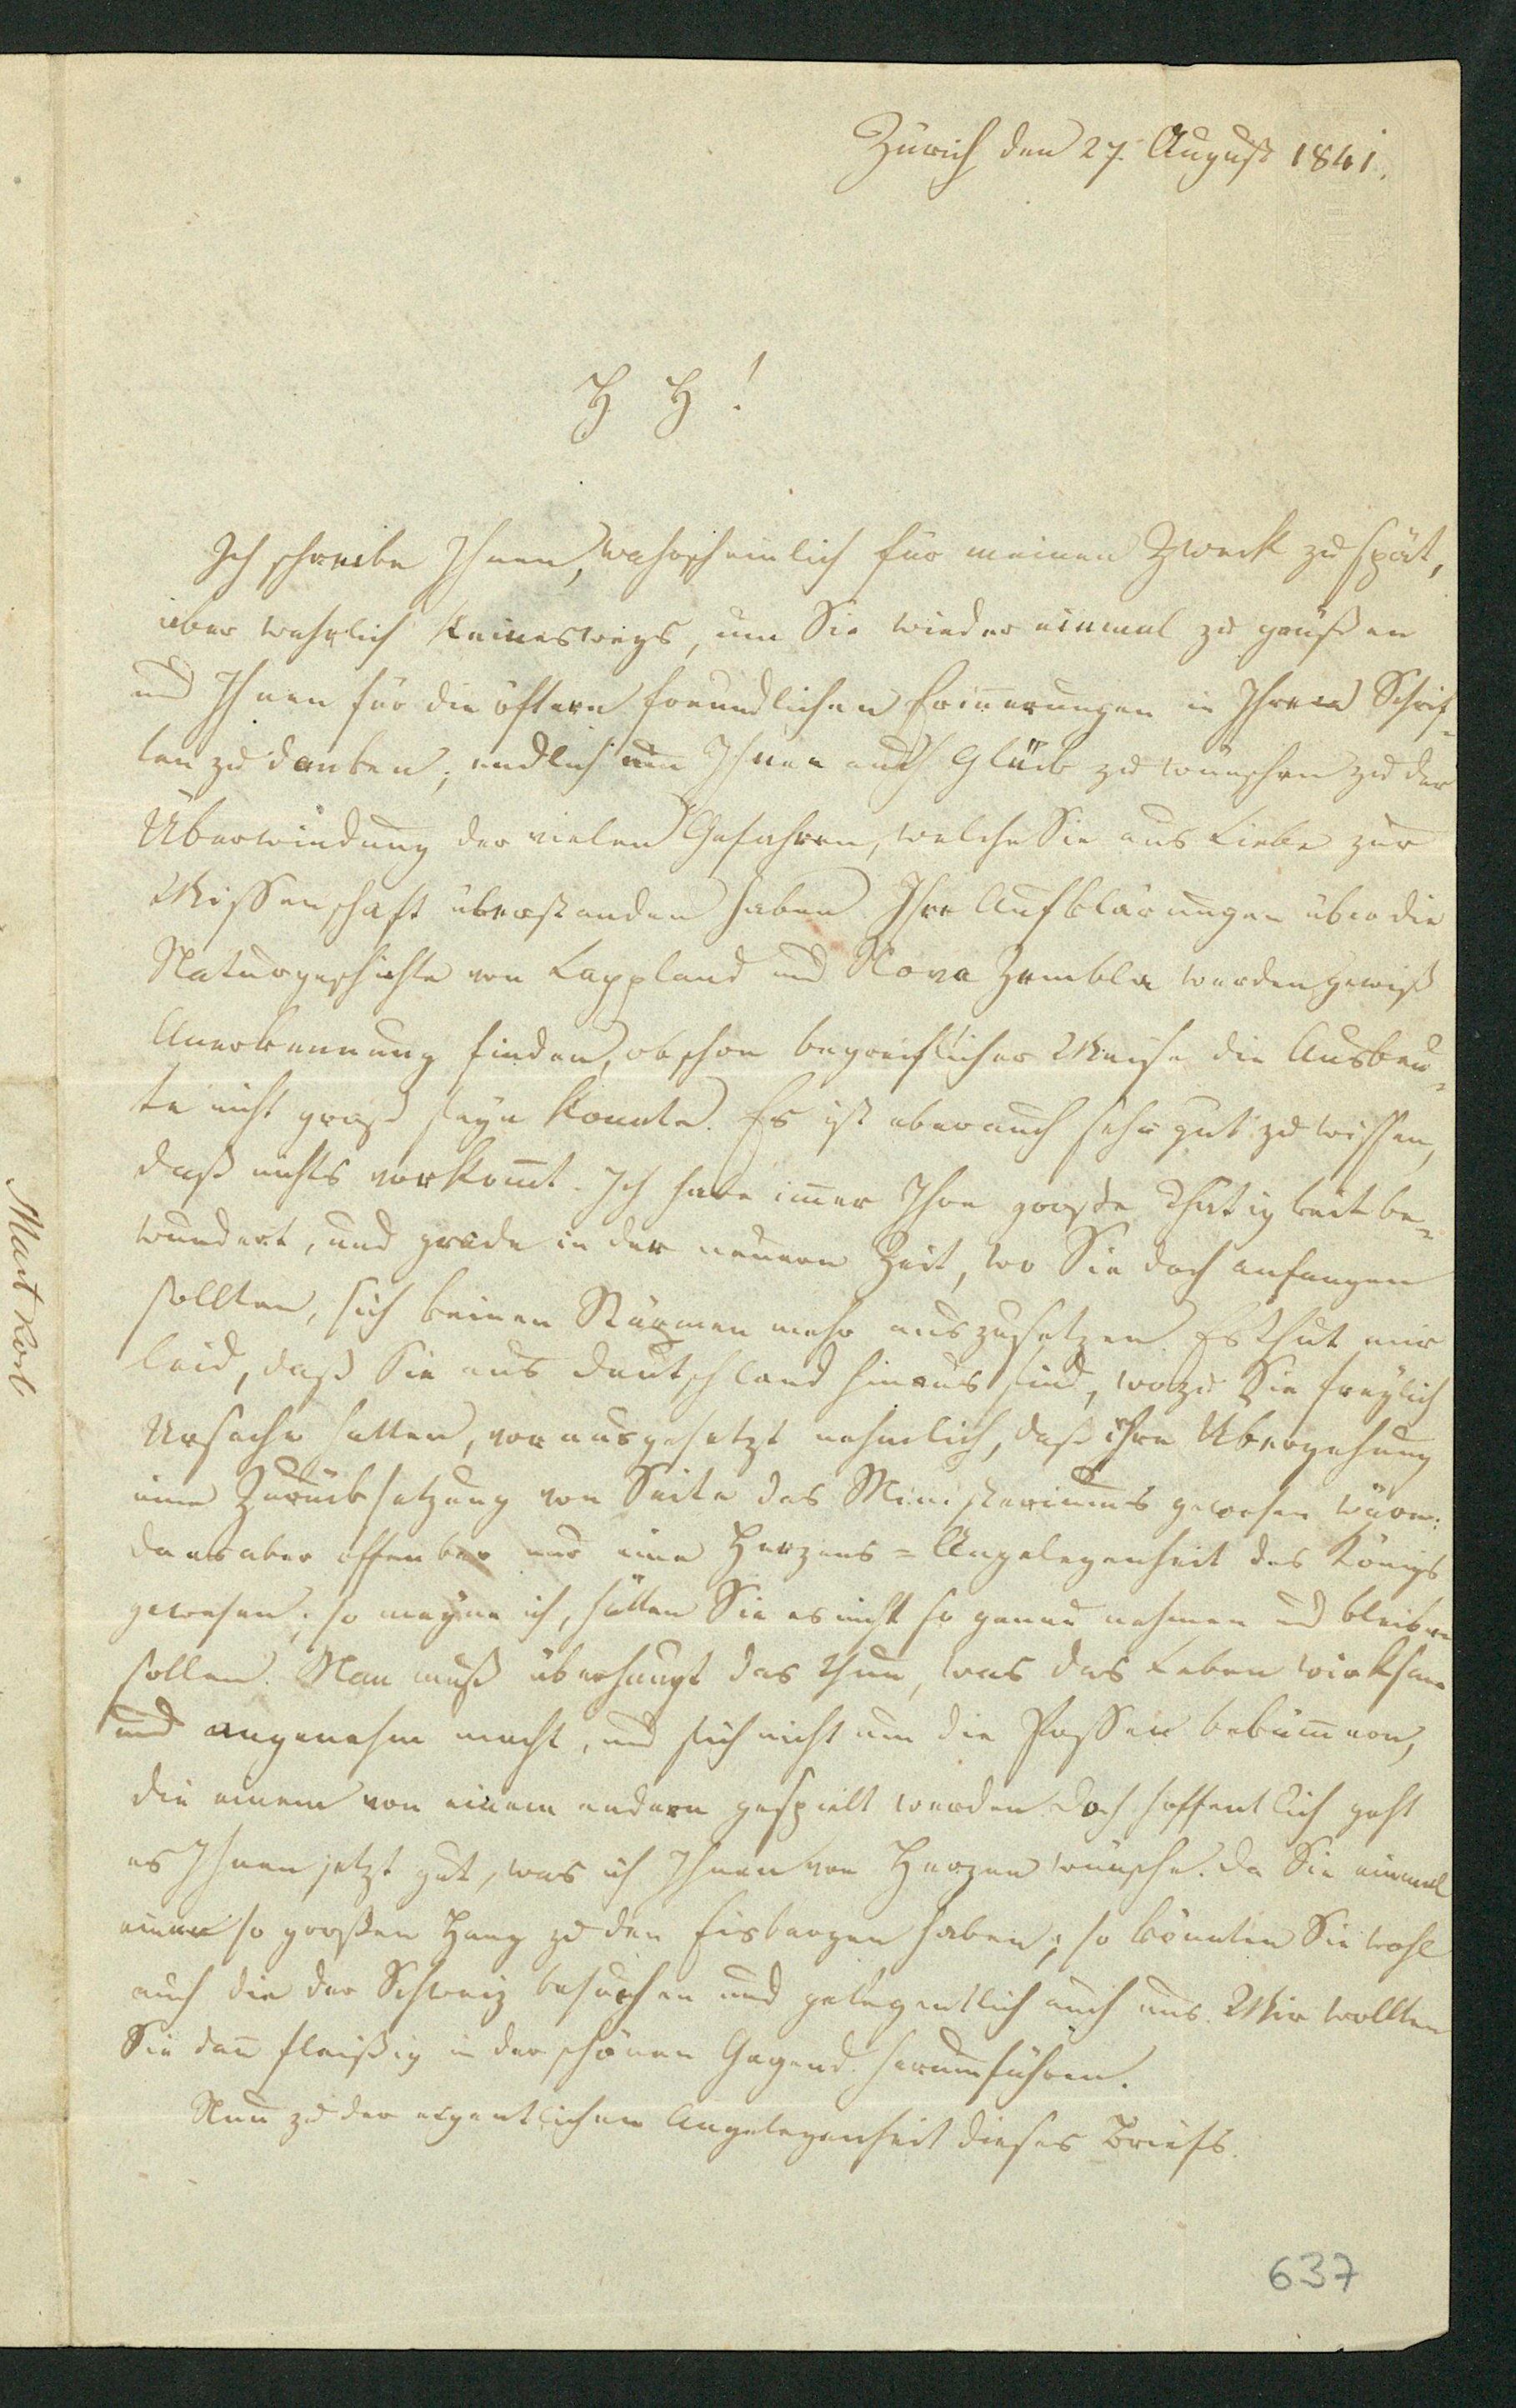 Zürich den 27. August 1841.
H H!
Ich schreibe Ihnen, wahrscheinlich für meinen Zweck zu spät,
aber wahrlich keineswegs, um Sie wieder einmal zu grüßen
und Ihnen für die öftern freundlichen Erinnerungen in Ihren Schrif-
ten zu danken; endlich um Ihnen auch Glück zu wünschen zu der
Überwindung der vielen Gefahren, welche Sie aus Liebe zur
Wissenschaft überstanden haben. Ihre Aufklärungen über die
Naturgeschichte von Lappland und Nova Zembla werden gewiß
Anerkennung finden, obschon begreiflicher Weise die Ausbeu-
te nicht groß seyn konnte. Es ist aber auch sehr gut zu wissen,
daß nichts vorkom̄t. Ich habe im̄er Ihre große Thätigkeit be-
wundert, und grade in der neuern Zeit, wo Sie doch anfangen
sollten, sich keinen Stürmen mehr auszusetzen. Es thut mir
leid, daß Sie aus Deutschland hinaus sind, wozu Sie freylich
Ursache hatten, vorausgesetzt nehmlich, daß ihre Übergehung
eine Zurücksetzung von Seite des Ministeriums gewesen wäre:
da es aber offenbar nur eine Herzens=Angelegenheit des Königs
gewesen; so meyne ich, hätten Sie es nicht so genau nehmen und bleiben
sollen. Man muß überhaupt das thun, was das Leben wirksam
und angenehm macht, und sich nicht um die Possen beküm̄ern,
die einem von einem andern gespielt werden. Doch hoffentlich geht
es Ihnen jetzt gut, was ich Ihnen von Herzen wünsche. Da Sie einmal
einen so großen Hang zu den Eisbergen haben; so könnten Sie wohl
auch die der Schweiz besuchen und gelegentlich auch uns. Wir wollten
Sie dan̄ fleißig in der schönen Gegend herumführen.
Nun zu der eigentlichen Angelegenheit dieses Briefs.
637